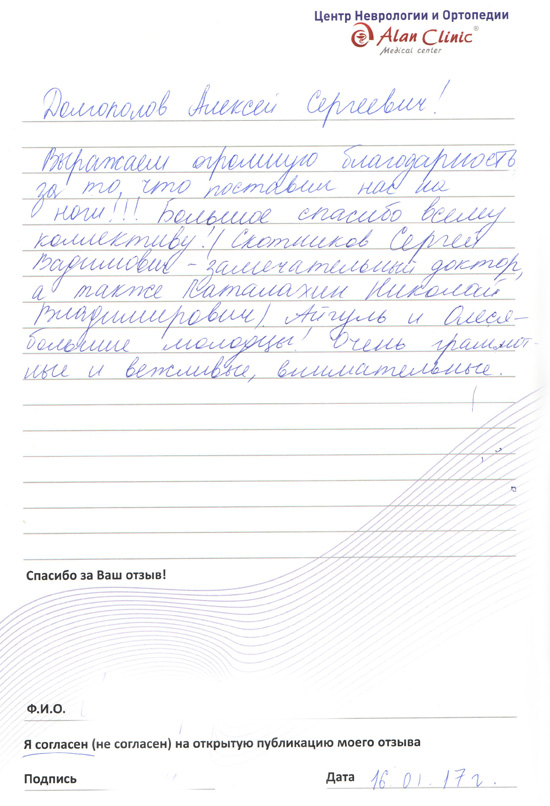 Центр Неврологии и Ортопедии
Alan Clinic®
Medical center
Долгополов Алексей Сергеевич!
Выражаем огромную благодарность
за то, что поставили нас на
ноги!!! Большое спасибо всему
коллективу! (Скотников Сергей
Вадимович - замечательный доктор,
а также Каталахин Николай
Владимирович) Айгуль и Олеся -
большие молодцы! Очень грамот-
ные и вежливые, внимательные.
Спасибо за Ваш отзыв!
Ф.И.О.
Я согласен (не согласен) на открытую публикацию моего отзыва
Подпись
Дата 16 01. 17 г.